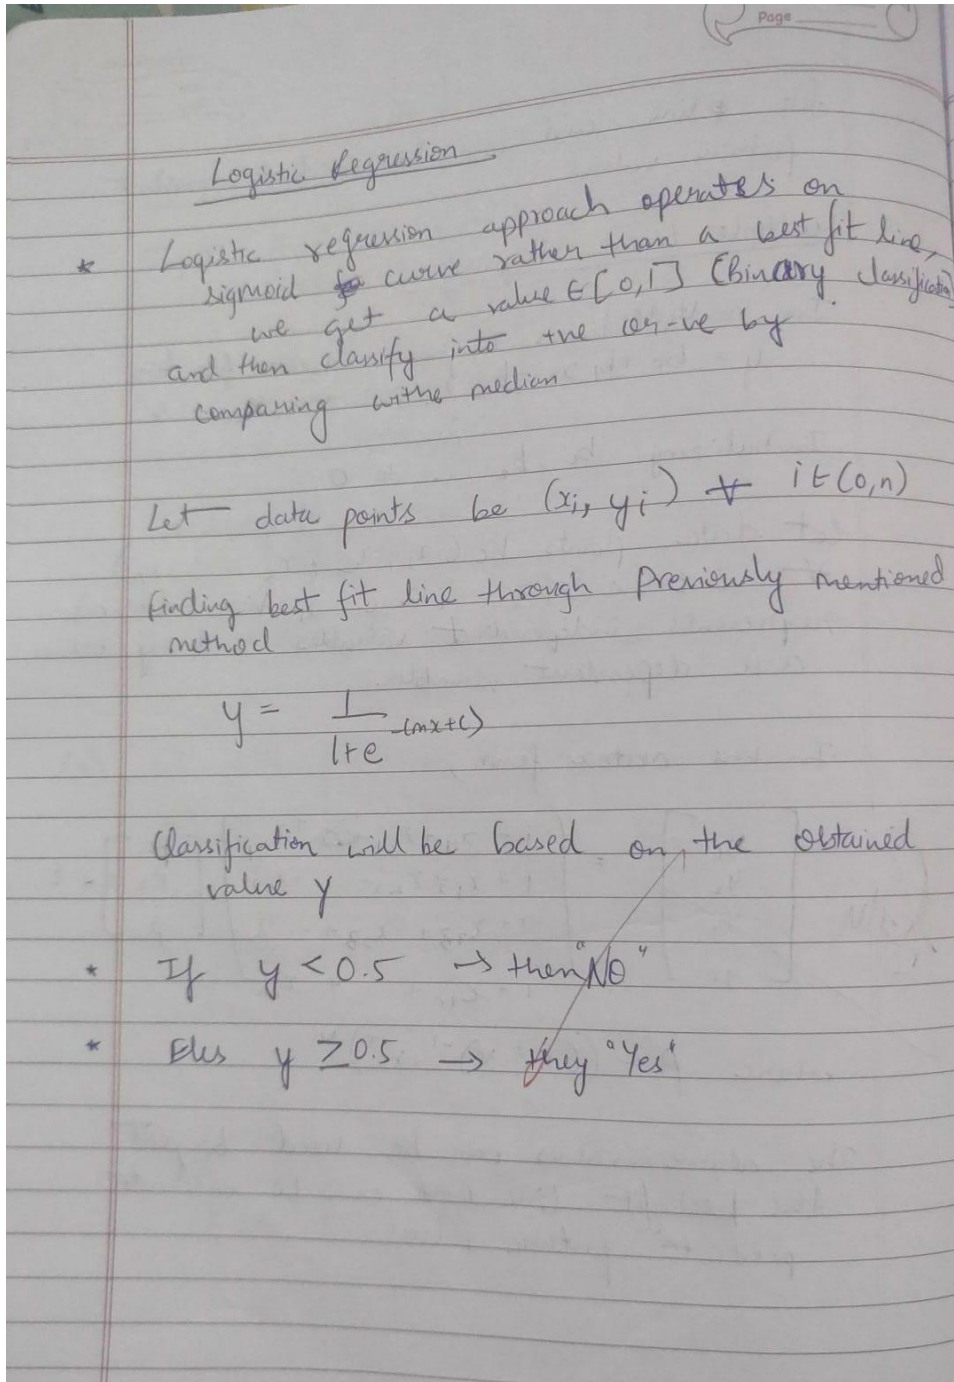 Page
Logistic Regression
* Logistic regression approach operates on
sigmoid curve rather than a best fit line,
we get a value ∈ [0,1] (Binary classification)
and then classify into +ve or -ve by
comparing withe median
Let data points be (xi, yi) ∀ i ∈ (0,n)
finding best fit line through previously mentioned
method
y = 1/1+e^-(mx+c)
Classification will be based on the obtained
value y
* If y < 0.5 → then "NO"
* Eles y ≥ 0.5 → they "Yes"